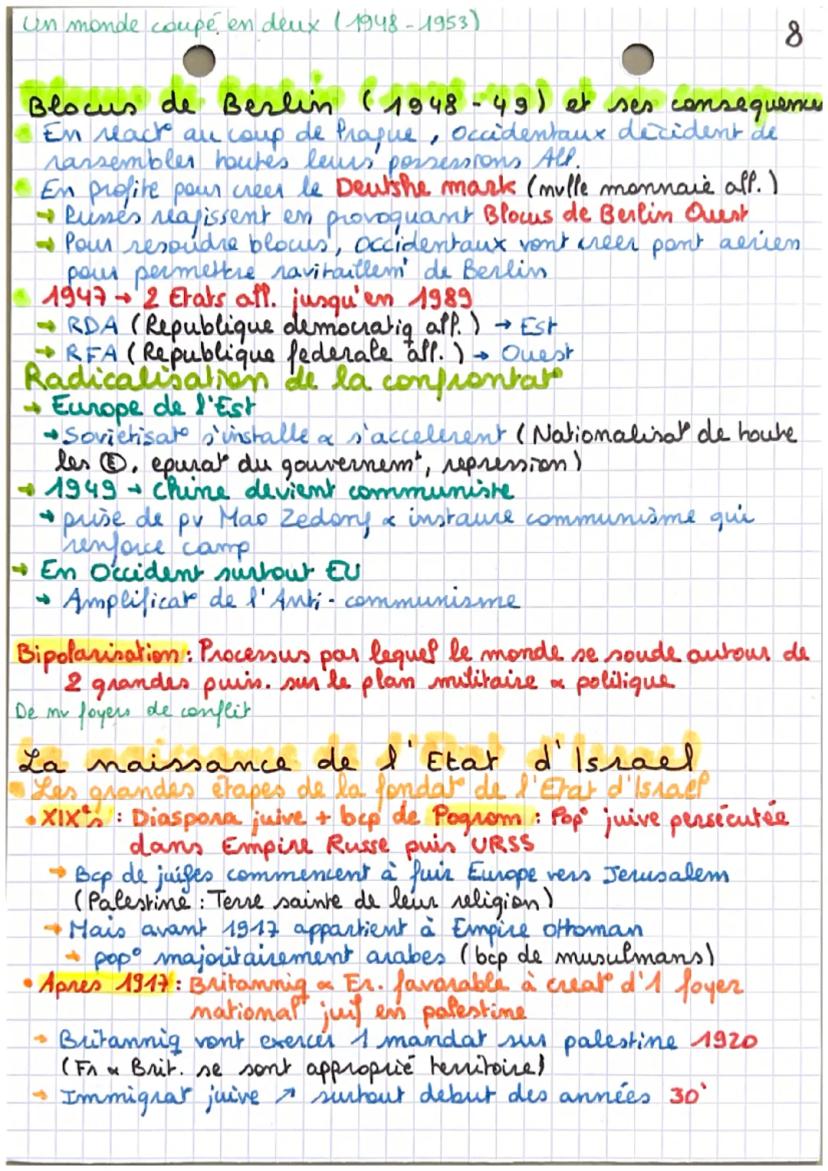 Un monde coupé en deux (1948-1953)
8
Blocus de Berlin (1948-49) et ses consequence
En react° au coup de Prague, Occidentaux décident de
rassembler toutes leurs possessions All.
En profite pour creer le Deutshe mark (nvlle monnaie all.)
→ Russes reagissent en provoquant Blocus de Berlin Ouest
→ Pour resoudre blocus, Occidentaux vont creer pont aerien
pour permettre ravitaillemt de Berlin
1947 → 2 Etats all. jusqu'en 1989
→ RDA (Republique democratiq all.) → Est
→ RFA (Republique federale all.) → Ouest
Radicalisation de la confrontat°
→ Europe de l'Est
→ Sovietisat° s'installe & s'accelerent (Nationalisat° de toute
les Ⓔ, epurat° du gouvernemt, repression)
→ 1949 → Chine devient communiste
→ prise de pv Mao Zedong & instaure communisme qui
renforce camp
→ En Occident surtout EU
→ Amplificat° de l'Anti-communisme
Bipolarisation: Processus par lequel le monde se soude autour de
2 grandes puis. sur le plan militaire & politique
De nv foyers de conflit
La naissance de l'Etat d'Israel
Les grandes étapes de la fondat° de l'Etat d'Israel
• XIXes: Diaspora juive + bcp de Pogrom: Pop° juive persécutée
dans Empire Russe puis URSS
→ Bcp de juifes commencent à fuir Europe vers Jerusalem
(Palestine: Terre sainte de leur religion)
→ Mais avant 1917 appartient à Empire ottoman
→ pop° majoritairement arabes (bcp de musulmans)
• Apres 1917: Britanniq & Fr. favorable à creat° d'1 foyer
national juif en palestine
→ Britanniq vont exercer 1 mandat sur palestine 1920
(Fr & Brit. se sont approprié territoire)
→ Immigrat° juive ↗ surtout debut des années 30'